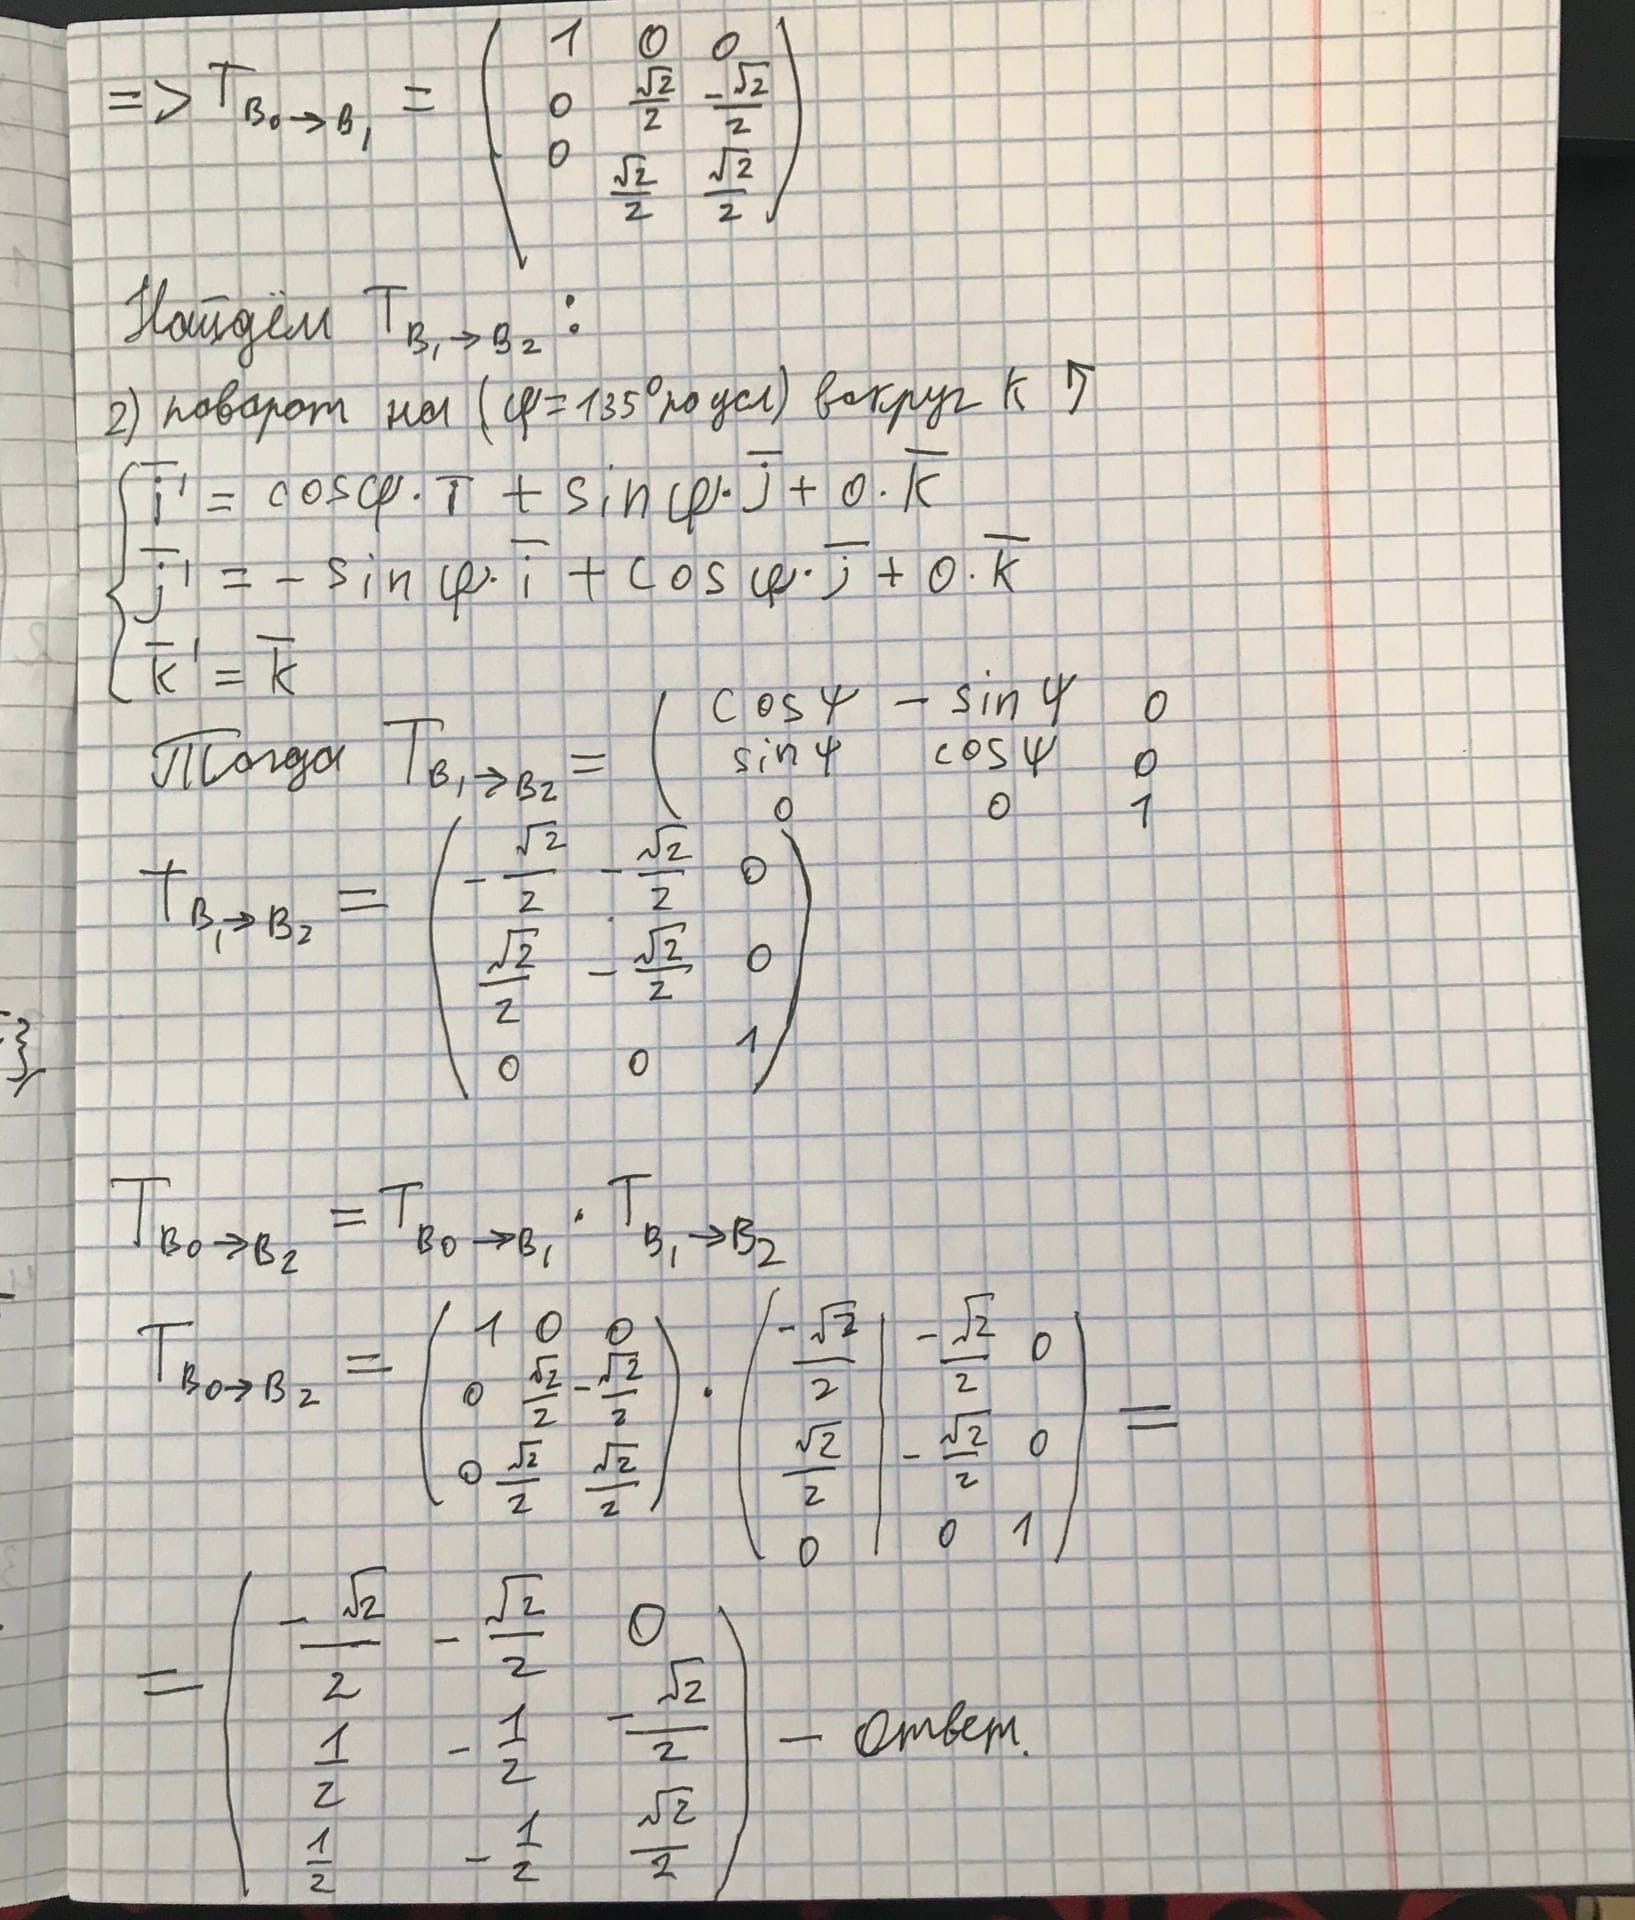 => T B₀→B₁ = ( 1 0 0
0 √2/2 -√2/2
0 √2/2 √2/2 )
Найдём T B₁→B₂ :
2) поворот на (φ=135° по усл) вокруг k ↑
i̅' = cosφ · i̅ + sinφ · j̅ + 0 · k̅
j̅' = - sinφ · i̅ + cosφ · j̅ + 0 · k̅
k̅' = k̅
Тогда T B₁→B₂ = ( cosψ - sinψ 0
sinψ cosψ 0
0 0 1
T B₁→B₂ = ( -√2/2 -√2/2 0
√2/2 -√2/2 0
0 0 1 )
T B₀→B₂ = T B₀→B₁ · T B₁→B₂
T B₀→B₂ = ( 1 0 0
0 √2/2 -√2/2
0 √2/2 √2/2 ) · ( -√2/2 | -√2/2 0
√2/2 | -√2/2 0
0 | 0 1 ) =
= ( -√2/2 -√2/2 0
1/2 -1/2 -√2/2
1/2 -1/2 √2/2 ) - ответ.